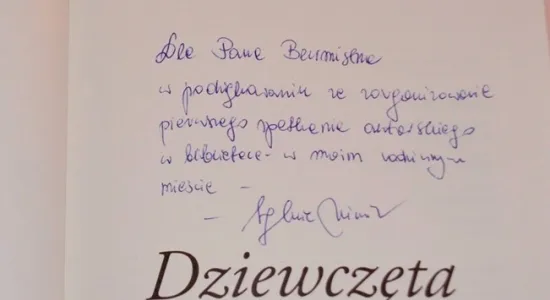 Dla Pana Burmistrza
w podziękowaniu za zorganizowanie
pierwszego spotkania autorskiego
w bibliotece - w moim rodzinnym
mieście -
Dziewczęta